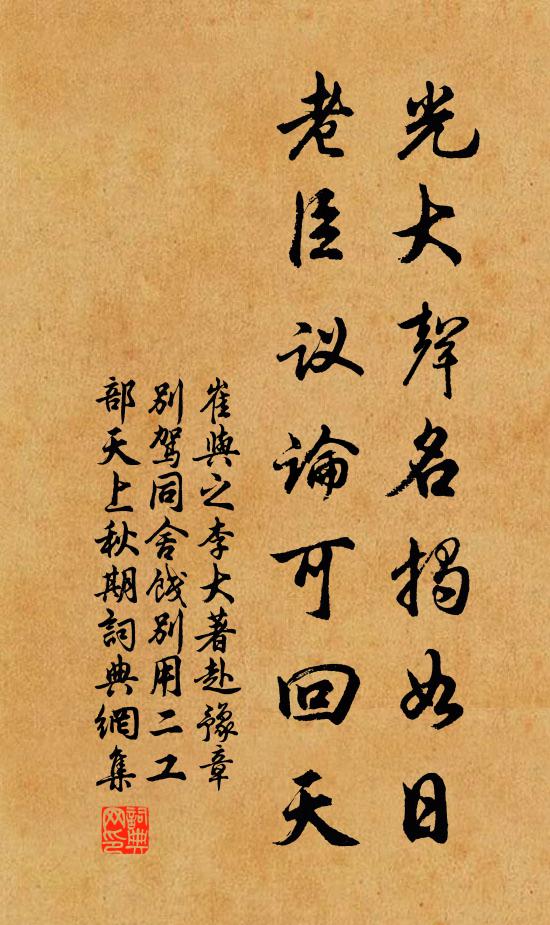 光大聲名揭如日
老臣议論可回天
崔與之李大著赴豫章
別駕同舍餞別用二工
部天上秋期詞典網集
詞典网印